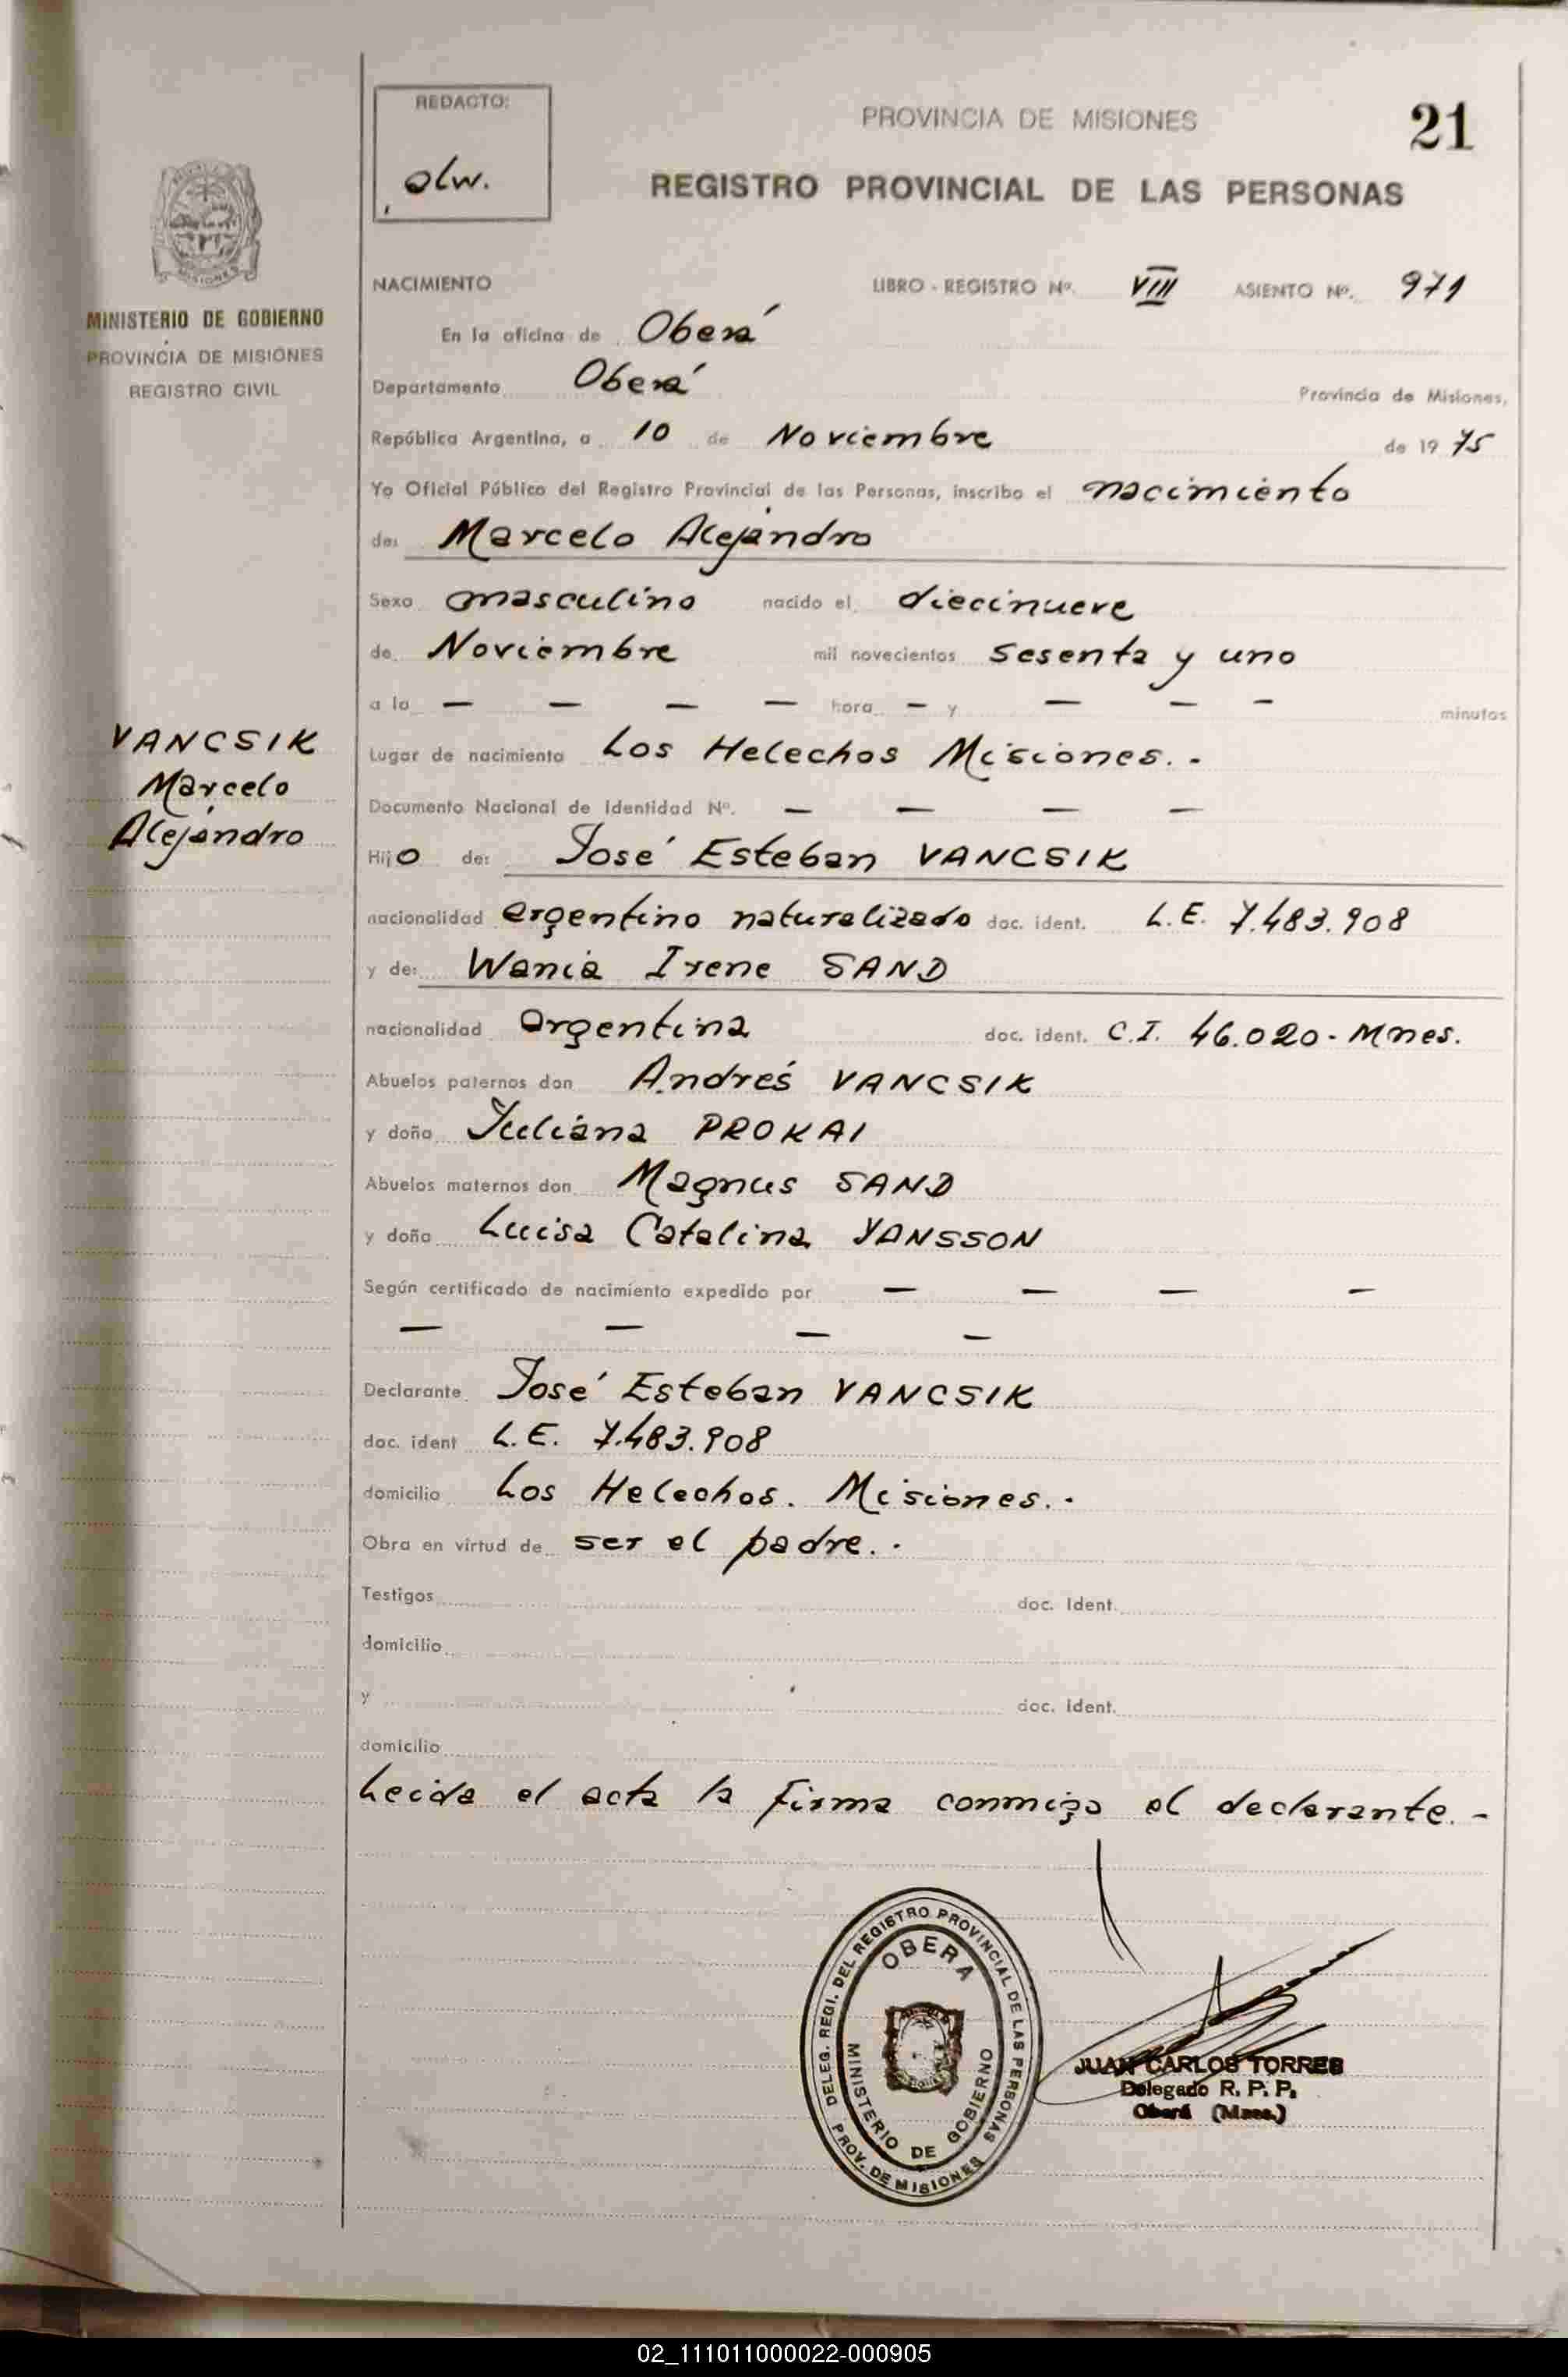 REDACTO:
olw.
PROVINCIA DE MISIONES
21
REGISTRO PROVINCIAL DE LAS PERSONAS
MISIONES
MINISTERIO DE GOBIERNO
PROVINCIA DE MISIONES
REGISTRO CIVIL
NACIMIENTO LIBRO - REGISTRO Nº. VIII ASIENTO Nº. 971
En la oficina de Oberá
Departamento Oberá Provincia de Misiones,
República Argentina, a 10 de Noviembre de 1975
Yo Oficial Público del Registro Provincial de las Personas, inscribo el nacimiento
de: Marcelo Alejandro
Sexo masculino nacido el diecinueve
de Noviembre mil novecientos sesenta y uno
a la — — — — hora — y — — — minutos
VANCSIK
Marcelo
Alejandro
Lugar de nacimiento Los Helechos Misiones.-
Documento Nacional de Identidad Nº. — — — —
Hijo de: José Esteban VANCSIK
nacionalidad argentino naturalizado doc. ident. L.E. 7.483.908
y de: Wania Irene SAND
nacionalidad argentina doc. ident. C.I. 46.020- Mnes.
Abuelos paternos don Andrés VANCSIK
y doña Juliana PROKAI
Abuelos maternos don Magnus SAND
y doña Luisa Catalina YANSSON
Según certificado de nacimiento expedido por — — — —
— — — —
Declarante José Esteban VANCSIK
doc. ident L.E. 7.483.908
domicilio Los Helechos. Misiones.-
Obra en virtud de ser el padre.-
Testigos doc. Ident.
domicilio
y doc. Ident.
domicilio
Leida el acta la firma conmigo el declarante.-
DELEG. REGI. DEL REGISTRO PROVINCIAL DE LAS PERSONAS
OBERA
MINISTERIO DE GOBIERNO
PROV. DE MISIONES
JUAN CARLOS TORRES
Delegado R. P. P.
Oberá (Mnes.)
02_111011000022-000905